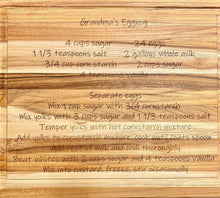 Grandma's Eggnog
4 cups sugar 24 eggs
1 1/3 teaspoons salt 2 gallons whole milk
3/4 cup corn starch 2 cups sugar
4 teaspoons vanilla
Separate eggs
Mix 1 cup sugar with 3/4 cornstarch
Mix yolks with 3 cups sugar and 1 1/3 teaspoons salt
Temper yolks with hot cornstarch mixture...
Add yolks to cornstarch mixture, cook until coats spoon
Add rest of milk and chill thoroughly
Beat whites with 2 cups sugar and 4 teaspoons vanilla
Mix into custard, freeze, stir occasionally